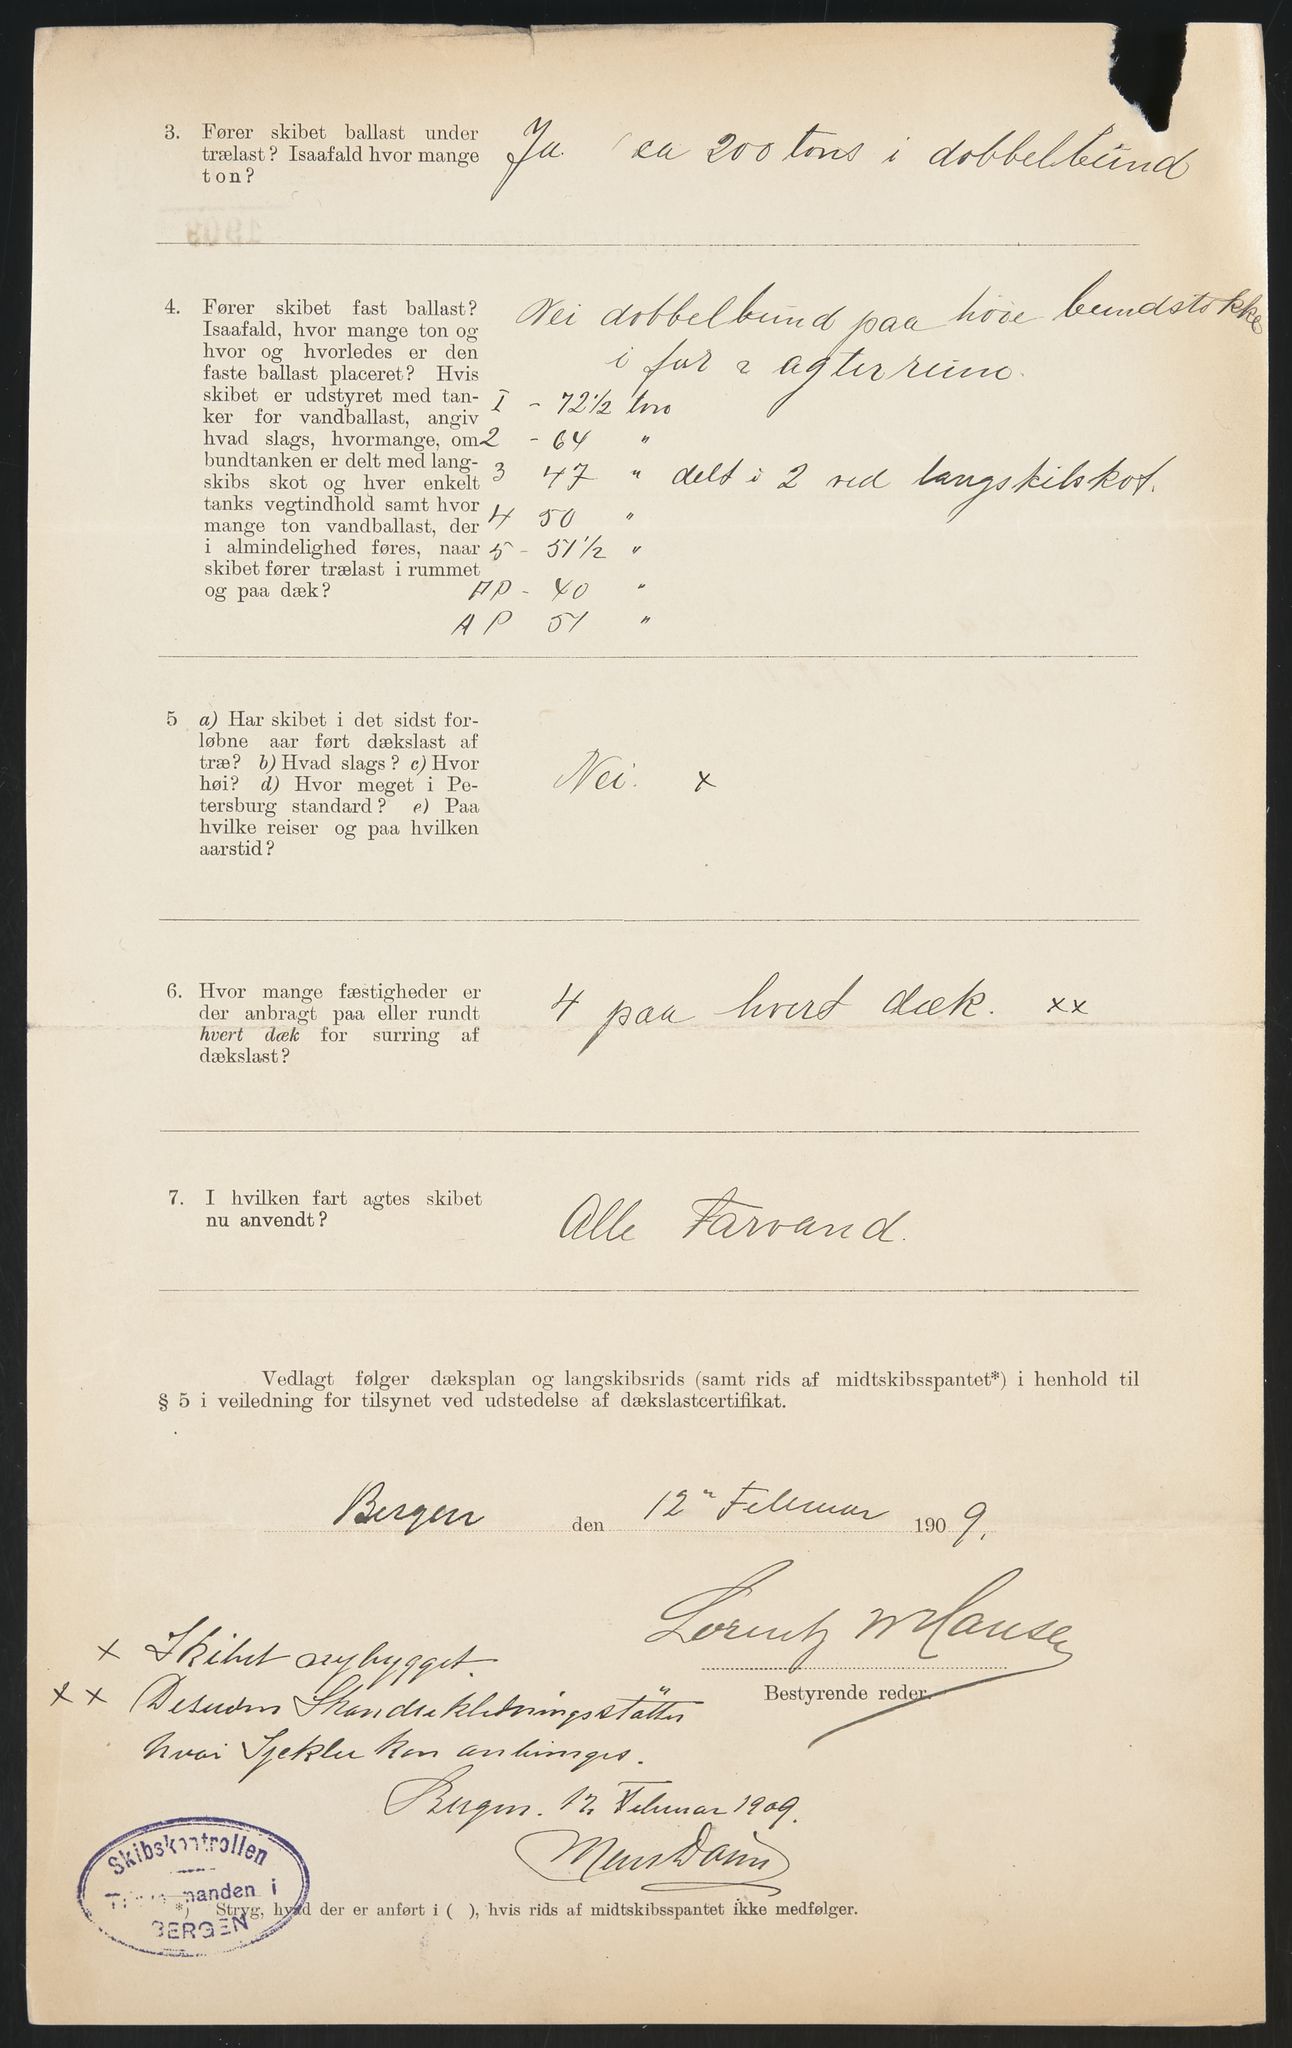 3. Fører skibet ballast under
trælast? Isaafald hvor mange
ton?
Ja ca 200 tons i dobbelbund
4. Fører skibet fast ballast?
Isaafald, hvor mange ton og
hvor og hvorledes er den
faste ballast placeret? Hvis
skibet er udstyret med tan-
ker for vandballast, angiv
hvad slags, hvormange, om
bundtanken er delt med lang-
skibs skot og hver enkelt
tanks vegtindhold samt hvor
mange ton vandballast, der
i almindelighed føres, naar
skibet fører trælast i rummet
og paa dæk?
Nei dobbelbund paa høie bundstokke
i for & agterrum.
I - 72 1/2 tons
2 - 64 "
3 47 " delt i 2 ved langskibskot.
4 50 "
5 - 51 1/2 "
FP - 40 "
AP 51 "
5 a) Har skibet i det sidst for-
løbne aar ført dækslast af
træ? b) Hvad slags? c) Hvor
høi? d) Hvor meget i Pe-
tersburg standard? e) Paa
hvilke reiser og paa hvilken
aarstid?
Nei. x
6. Hvor mange fæstigheder er
der anbragt paa eller rundt
hvert dæk for surring af
dækslast?
4 paa hvert dæk. xx
7. I hvilken fart agtes skibet
nu anvendt?
Alle Farvand.
Vedlagt følger dæksplan og langskibsrids (samt rids af midtskibsspantet*) i henhold til
§ 5 i veiledning for tilsynet ved udstedelse af dækslastcertifikat.
Bergen den 12te Februar 1909.
Lorentz W Hansen
Bestyrende reder.
x Skibet nybygget.
xx Desuden Skandseklædningsstøtter
hvor Sjekler kan anbringes.
Bergen. 12. Februar 1909.
Skibskontrollen
manden i
BERGEN
*) Stryg, hvad der er anført i ( ), hvis rids af midtskibsspantet ikke medfølger.